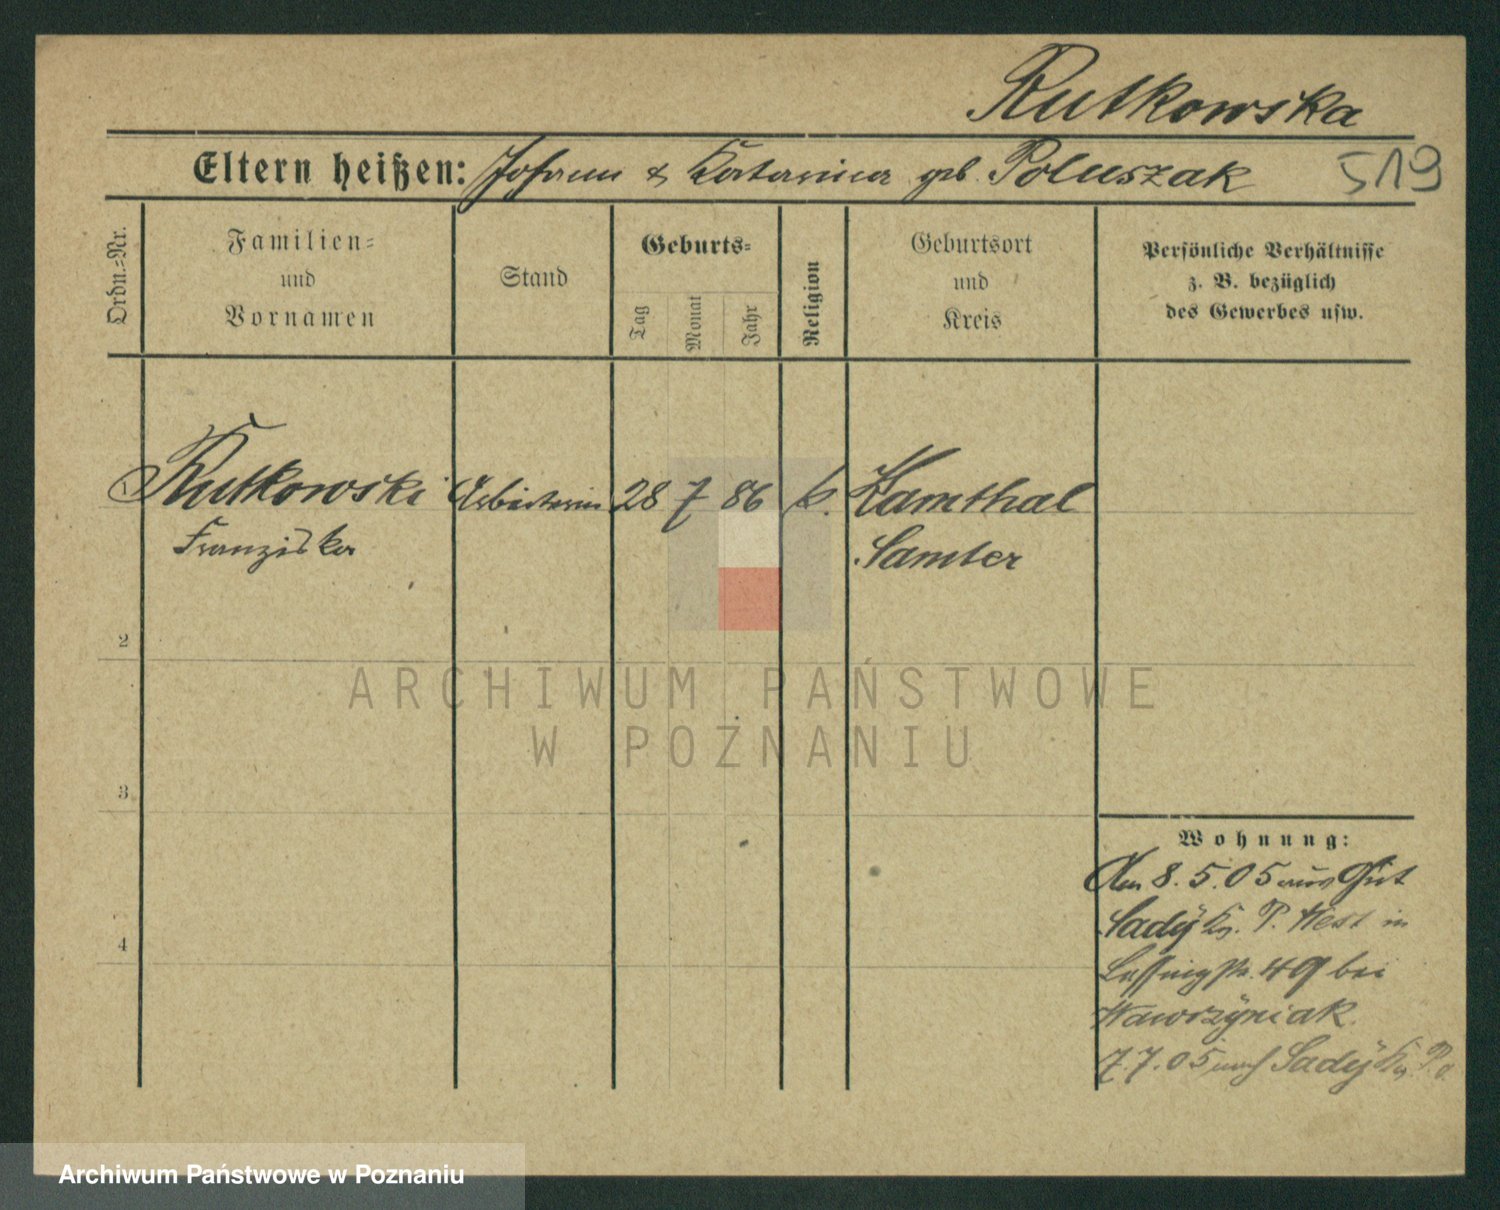 Rutkowska
Eltern heißen: Johann & Katarina geb. Poluszak 519
Ordn.-Nr.
Familien-
und
Vornamen
Stand
Geburts-
Tag
Monat
Jahr
Religion
Geburtsort
und
Kreis
Persönliche Verhältnisse
z. B. bezüglich
des Gewerbes usw.
1 Rutkowski Arbeiterin 28 7 86 k. Zamthal
Franziska Samter
2
ARCHIWUM PAŃSTWOWE
W POZNANIU
3
Wohnung:
Am 8. 5. 05 aus Gut
Sady Kr. P. West in
Lessingstr. 49 bei
Wawrzyniak
4
7. 7. 05 nach Sady Kr. P.
Archiwum Państwowe w Poznaniu